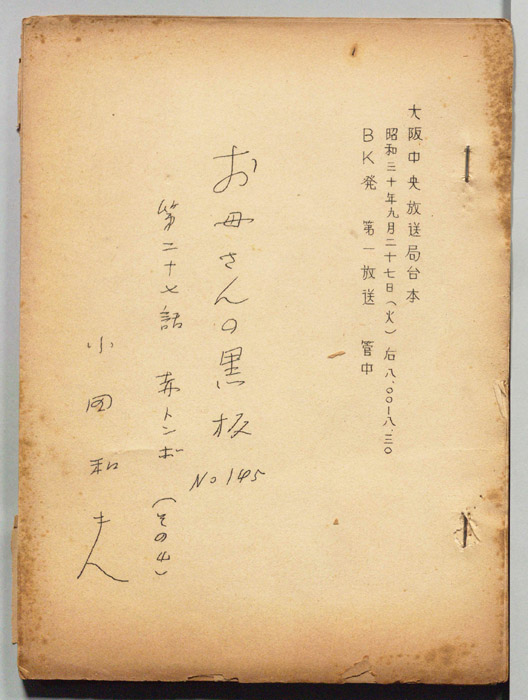 大阪中央放送局台本
昭和三十年九月二十七日（火）后八.〇〇—八.三〇
BK発 第一放送 管中
お母さんの黒板
No 145
第二十七話 赤トンボ（その四）
小田和夫